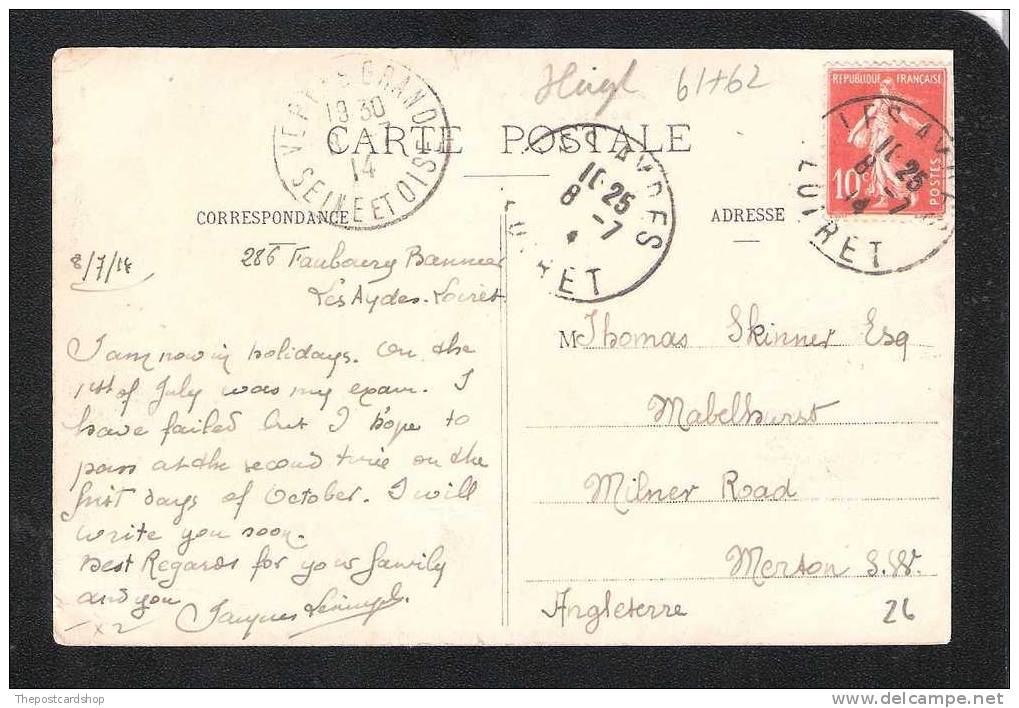 61+62
REPUBLIQUE FRANÇAISE
10c POSTES
VERT LE GRAND
18 30
7
14
SEINE ET OISE
CARTE POSTALE
LES AYDES
11 25
8 -7
LOIRET
LES AYDES
11 25
8 -7
14
LOIRET
CORRESPONDANCE
ADRESSE
8/7/14
286 Faubourg Bannier
Les Aydes. Loiret
I am now in holidays. On the
1st of July was my exam. I
have failed but I hope to
pass at the second time on the
first days of October. I will
write you soon.
Best Regards for your family
and you
Jacques
M Thomas Skinner Esq
Mabelhurst
Milner Road
Merton S.W.
Angleterre
26
Thepostcardshop
www.delcampe.net